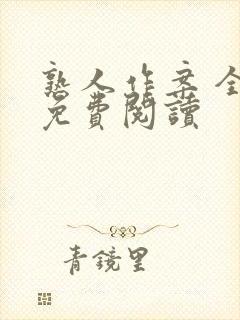 熟人作案全
免費閱讀
青鏡里